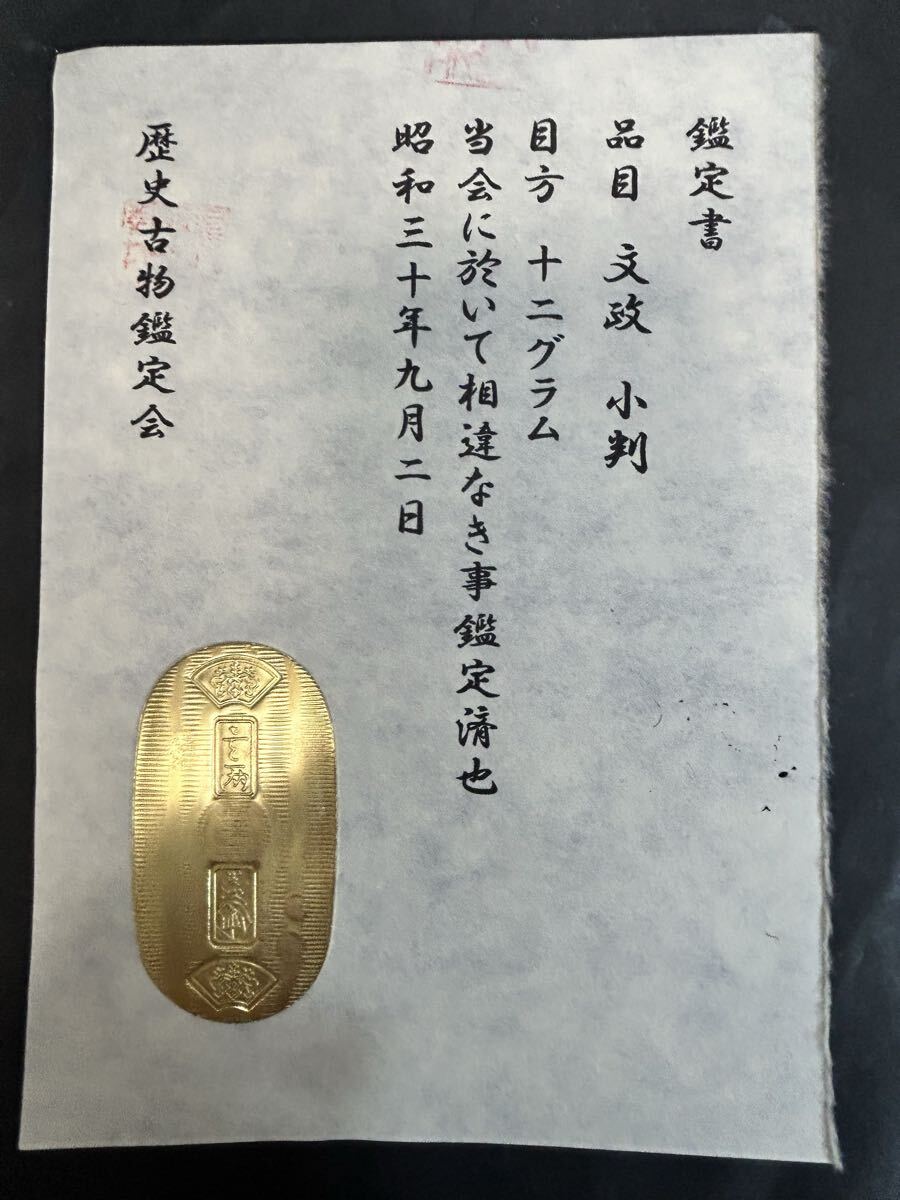 鑑定書
品目 文政 小判
目方 十二グラム
当会に於いて相違なき事鑑定済也
昭和三十年九月二日
歴史古物鑑定会